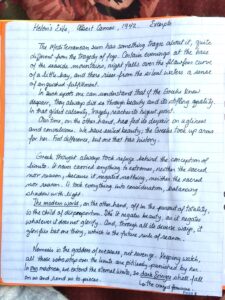 Helen's Exile, Albert Camus, 1948. Example
The Mediterranean sun has something tragic about it, quite
different from the tragedy of fogs. Certain evenings at the base
of the seaside mountains, night falls over the flawless curve
of a little bay, and there rises from the silent waters a sense
of anguished fulfillment.
In such spots one can understand that if the Greeks knew
despair, they always did so through beauty and its stifling quality.
In that gilded calamity, tragedy reaches its highest point.
Our time, on the other hand, has fed its despair on ugliness
and convulsions. We have exiled beauty; the Greeks took up arms
for her. First difference, but one that has history.
Greek thought always took refuge behind the conception of
limits. It never carried anything to extremes, neither the sacred
nor reason, because it negated nothing, neither the sacred
nor reason. It took everything into consideration, balancing
shadow with light.
The modern world, on the other hand, off in the pursuit of totality
is the child of disproportion. She negates beauty, as it negates
whatever it does not glorify. And, through all its diverse ways, it
glorifies but one thing, which is the future rule of reason.
Nemesis is the goddess of measure, not revenge. Keeping watch,
all those who overstep the limit are pitilessly punished by her.
In our madness, we extend the eternal limits, so dark Furies shall fall
on us and rend us to pieces.